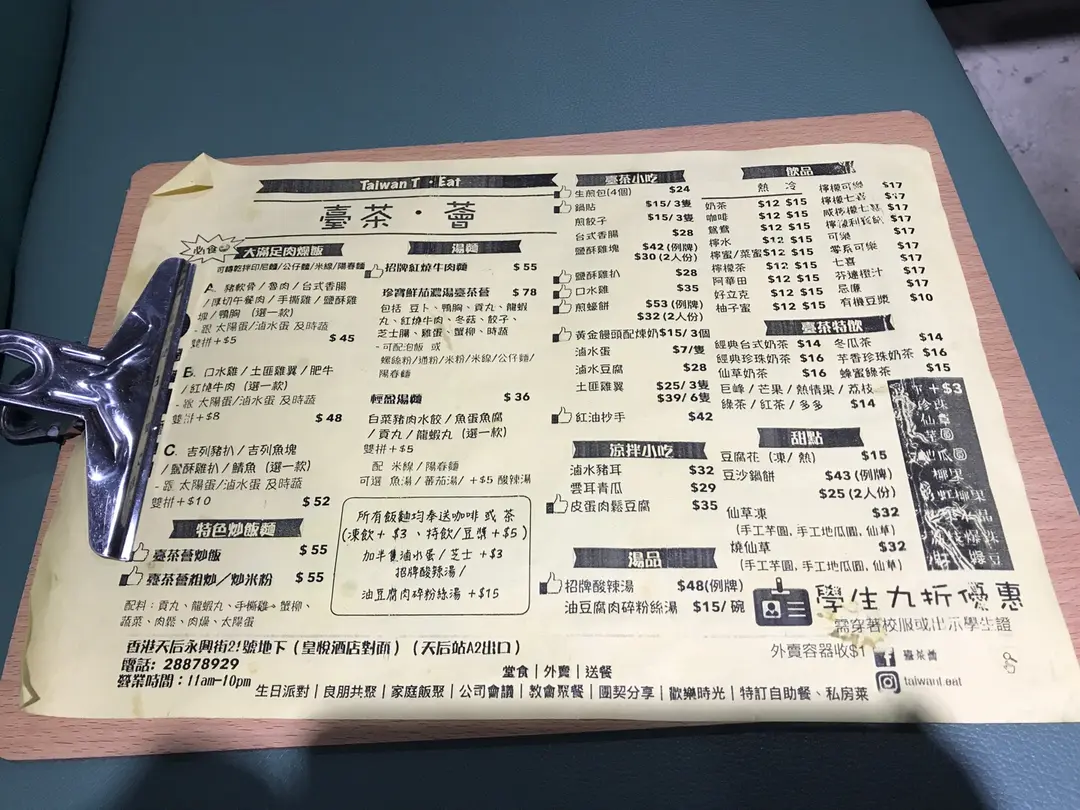 Taiwan T · Eat
臺茶·薈
必食
大滿足肉燥飯
可轉乾拌印尼麵/公仔麵/米線/陽春麵
A. 豬軟骨/魯肉/台式香腸
/厚切午餐肉/手撕雞/鹽酥雞
/鴨胸 (選一款)
- 跟 太陽蛋/滷水蛋 及時蔬
雙拼+$5 $45
B. 口水雞/土匪雞翼/肥牛
/紅燒牛肉 (選一款)
太陽蛋/滷水蛋 及時蔬
+$8 $48
C. 吉列豬扒/吉列魚塊
/鹽酥雞扒/鯖魚 (選一款)
- 跟 太陽蛋/滷水蛋 及時蔬
雙拼+$10 $52
特色炒飯麵
臺茶薈炒飯 $55
臺茶薈粗炒/炒米粉 $55
配料:貢丸、龍蝦丸、手撕雞、蟹柳、
蔬菜、肉鬆、肉燥、太陽蛋
湯麵
招牌紅燒牛肉麵 $55
珍寶鮮茄濃湯臺茶薈 $78
包括 豆卜、鴨胸、貢丸、龍蝦
丸、紅燒牛肉、冬菇、餃子、
芝士腸、雞蛋、蟹柳、時蔬
- 可配泡飯 或
螺絲粉/通粉/米粉/米線/公仔麵/
陽春麵
輕盈湯麵 $36
白菜豬肉水餃/魚蛋魚腐
/貢丸/龍蝦丸 (選一款)
雙拼+$5
配 米線/陽春麵
可選 魚湯/蕃茄湯/ +$5 酸辣湯
所有飯麵均奉送咖啡 或 茶
(凍飲+ $3、特飲/豆漿 +$5)
加半隻滷水蛋/芝士 +$3
招牌酸辣湯/
油豆腐肉碎粉絲湯 +$15
臺茶小吃
生煎包(4個) $24
鍋貼 $15/3隻
煎餃子 $15/3隻
台式香腸 $28
鹽酥雞塊 $42 (例牌)
$30 (2人份)
鹽酥雞扒 $28
口水雞 $35
煎蠔餅 $53 (例牌)
$32 (2人份)
黃金饅頭配煉奶 $15/3個
滷水蛋 $7/隻
滷水豆腐 $28
土匪雞翼 $25/3隻
$39/6隻
紅油抄手 $42
涼拌小吃
滷水豬耳 $32
雲耳青瓜 $29
皮蛋肉鬆豆腐 $35
湯品
招牌酸辣湯 $48(例牌)
油豆腐肉碎粉絲湯 $15/碗
飲品
熱 冷
奶茶 $12 $15
咖啡 $12 $15
鴛鴦 $12 $15
檸水 $12 $15
檸蜜/菜蜜 $12 $15
檸檬茶 $12 $15
阿華田 $12 $15
好立克 $12 $15
柚子蜜 $12 $15
檸檬可樂 $17
檸檬七喜 $17
咸檸檬七喜 $17
檸檬利賓納 $17
可樂 $17
零系可樂 $17
七喜 $17
芬達橙汁 $17
忌廉 $17
有機豆漿 $10
臺茶特飲
經典台式奶茶 $14 冬瓜茶 $14
經典珍珠奶茶 $16 芋香珍珠奶茶 $16
仙草奶茶 $16 蜂蜜綠茶 $15
巨峰/芒果/熱情果/荔枝
綠茶/紅茶/多多 $14
+$3
仙草
芋圓
地瓜圓
椰果
甜點
豆腐花 (凍/熱) $15
豆沙鍋餅 $43 (例牌)
$25 (2人份)
仙草凍 $32
(手工芋圓,手工地瓜圓,仙草)
燒仙草 $32
(手工芋圓,手工地瓜圓,仙草)
學生九折優惠
需穿著校服或出示學生證
外賣容器收$1
臺茶薈
taiwant.eat
香港天后永興街21號地下(皇悅酒店對面)(天后站A2出口)
電話: 28878929
營業時間:11am-10pm
堂食|外賣|送餐
生日派對|良朋共聚|家庭飯聚|公司會議|教會聚餐|團契分享|歡樂時光|特訂自助餐、私房菜